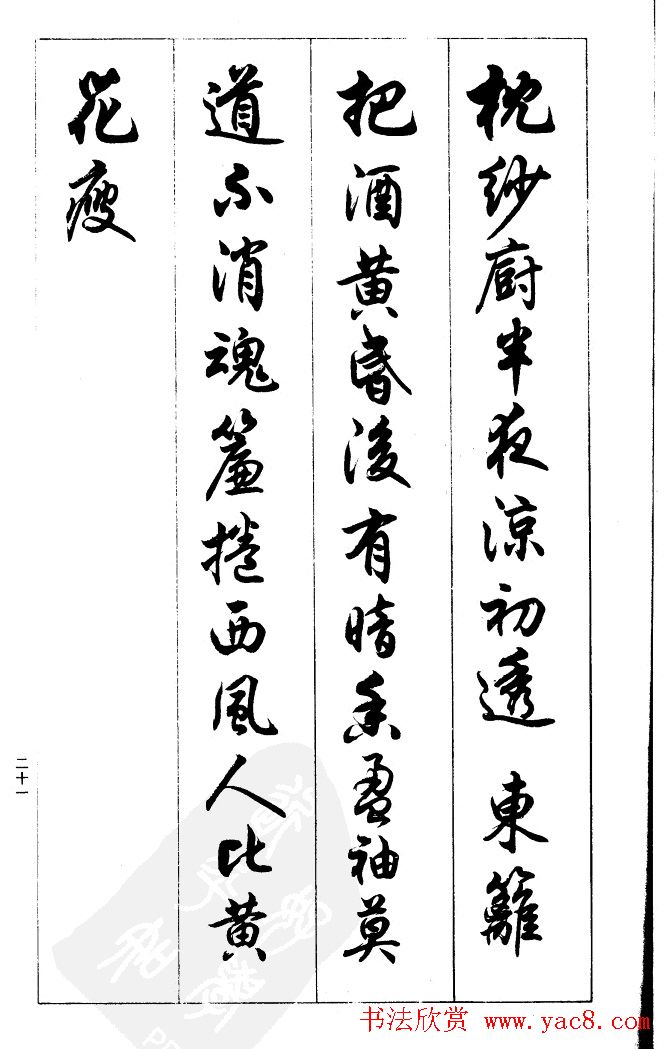 枕紗廚半夜涼初透 東籬
把酒黄昏後有暗香盈袖莫
道不消魂簾捲西風人比黄
花瘦
二十一
书法欣赏 www.yac8.com